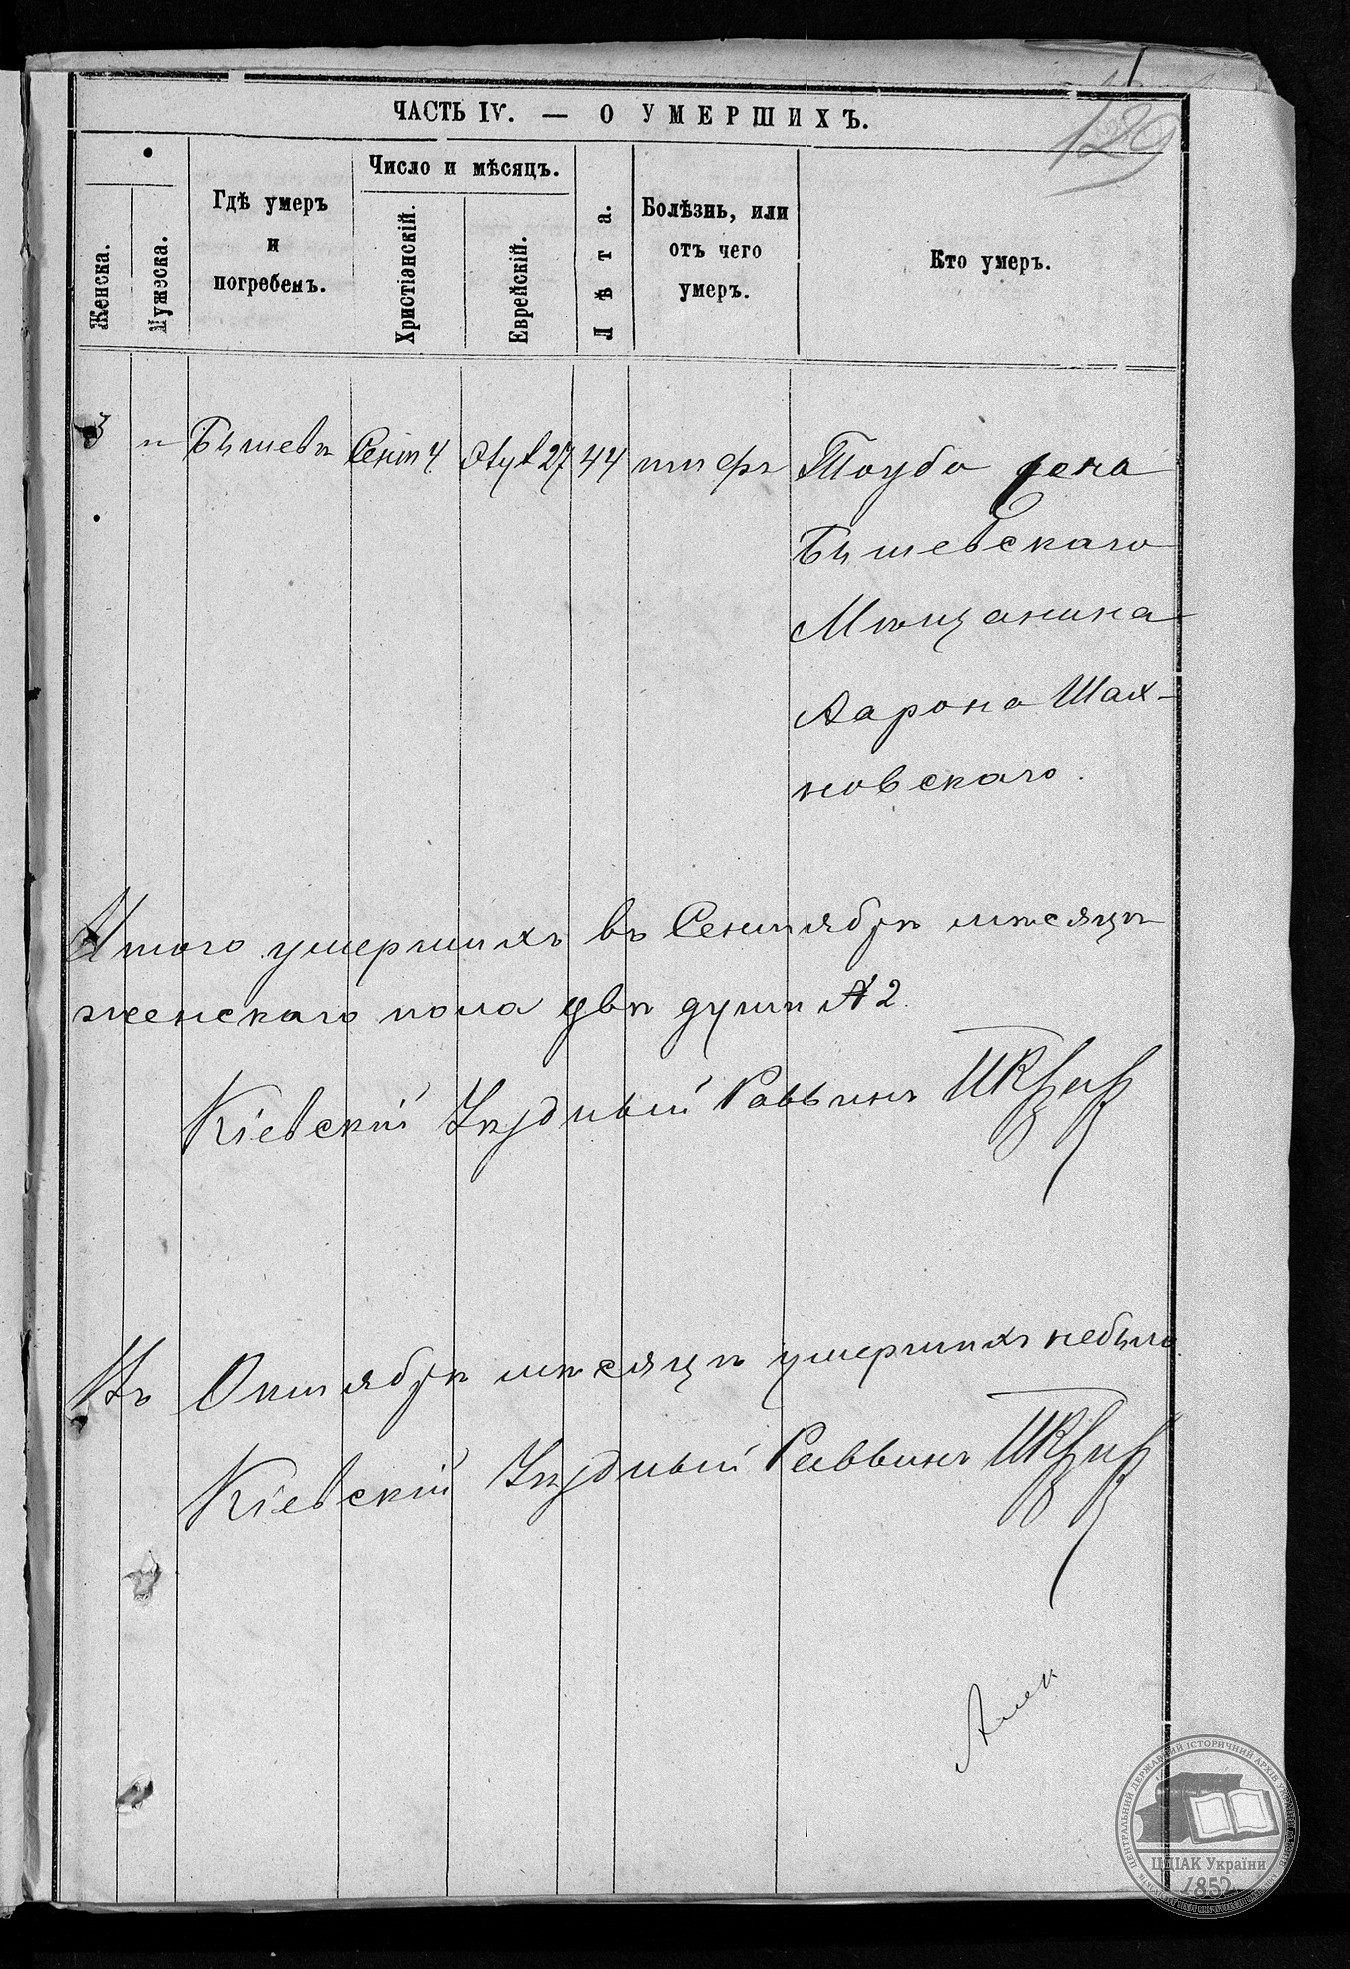 129
ЧАСТЬ IV. — О УМЕРШИХЪ.
Женска.
Мужеска.
Гдѣ умеръ
и
погребенъ.
Число и мѣсяцъ.
Христіанскій.
Еврейскій.
Лѣта.
Болѣзнь, или
отъ чего
умеръ.
Кто умеръ.
3 " Бышевѣ Сент 4 27 44 тифъ Тауба жена
Бышевскаго
Мѣщанина
Аарона Шах-
новскаго.
Итого умершихъ въ Сентябрѣ мѣсяцѣ
женскаго пола двѣ души № 2.
Кіевскій Уѣздный Раввинъ
Въ Октябрѣ мѣсяцѣ умершихъ небыло.
Кіевскій Уѣздный Раввинъ
ЦЕНТРАЛЬНИЙ ДЕРЖАВНИЙ ІСТОРИЧНИЙ АРХІВ УКРАЇНИ
ЦДІАК України
1852